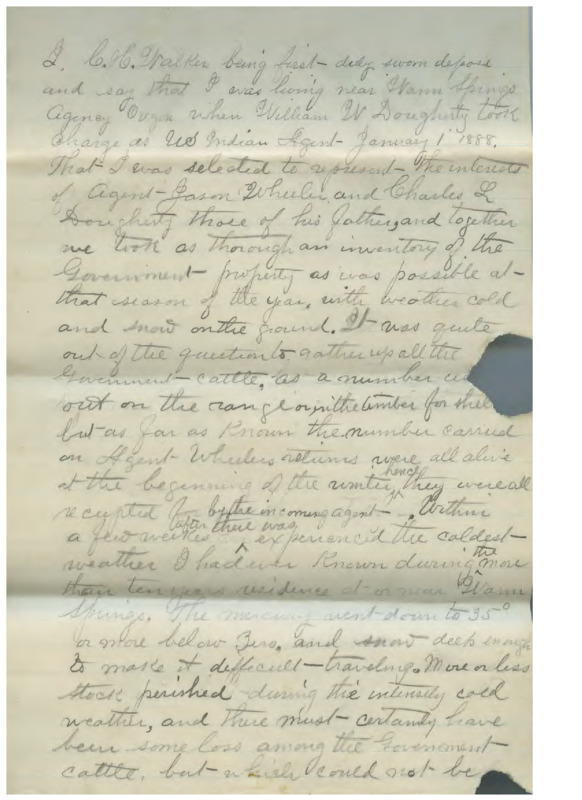 I, C. H. Walker being first duly sworn depose
and say that I was living near Warm Springs
Agency Oregon when William W Dougherty took
charge as US Indian Agent January 1st 1888.
That I was selected to represent the interests
of Agent Jason Wheeler, and Charles L
Dougherty those of his father, and together
we took as thorough an inventory of the
Government property as was possible at
that season of the year, with weather cold
and snow on the ground. It was quite
out of the question to gather up all the
Government cattle, as a number
out on the range or in the timber for
but as far as known the number carried
on Agent Wheelers returns were all alive
at the beginning of the winter, hence they were all
receipted for by the incoming agent. Within
a few weeks after there was experienced the coldest
weather I had ever known during the more
than ten years residence at or near Warm
Springs. The mercury went down to 35°
or more below Zero, and snow deep enough
to make it difficult traveling. More or less
stock perished during the intensely cold
weather, and there must certainly have
been some loss among the Government
cattle, but which could not be